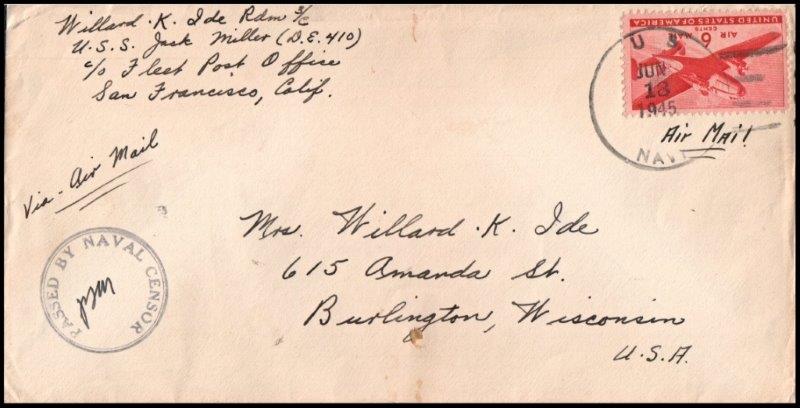 Willard K. Ide Rdm 3/c
U.S.S. Jack Miller (D.E. 410)
c/o Fleet Post Office
San Francisco, Calif.
UNITED STATES
OF AMERICA
AIR MAIL
6
CENTS
U S
JUN
13
1945
NAVY
Air Mail
Via - Air Mail
PASSED BY NAVAL CENSOR
Mrs. Willard K. Ide
615 Amanda St.
Burlington, Wisconsin
U.S.A.